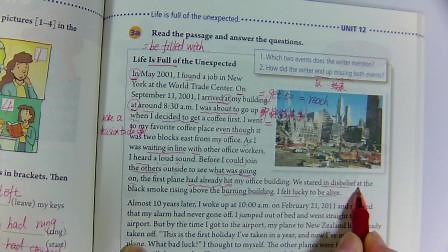 Life is full of the unexpected.
UNIT 12
pictures [1–4] in the
3a Read the passage and answer the questions.
= be filled with
1. Which two events does the writer mention?
2. How did the writer end up missing both events?
Life Is Full of the Unexpected
In May 2001, I found a job in New
York at the World Trade Center. On
September 11, 2001, I arrived at my building
= reach
at around 8:30 a.m. I was about to go up
when I decided to get a coffee first. I went
to my favorite coffee place even though it
was two blocks east from my office. As I
was waiting in line with other office workers,
I heard a loud sound. Before I could join
the others outside to see what was going
on, the first plane had already hit my office building. We stared in disbelief at the
black smoke rising above the burning building. I felt lucky to be alive.
Almost 10 years later, I woke up at 10:00 a.m. on February 21, 2011 and
that my alarm had never gone off. I jumped out of bed and went straight
airport. But by the time I got to the airport, my plane to New Zealand had already
taken off. "This is the first holiday I've taken in a year, and now I
plane. What bad luck!" I thought to myself. The other planes were
s in brackets. Then
left
(leave) my keys
had rung
(ring)